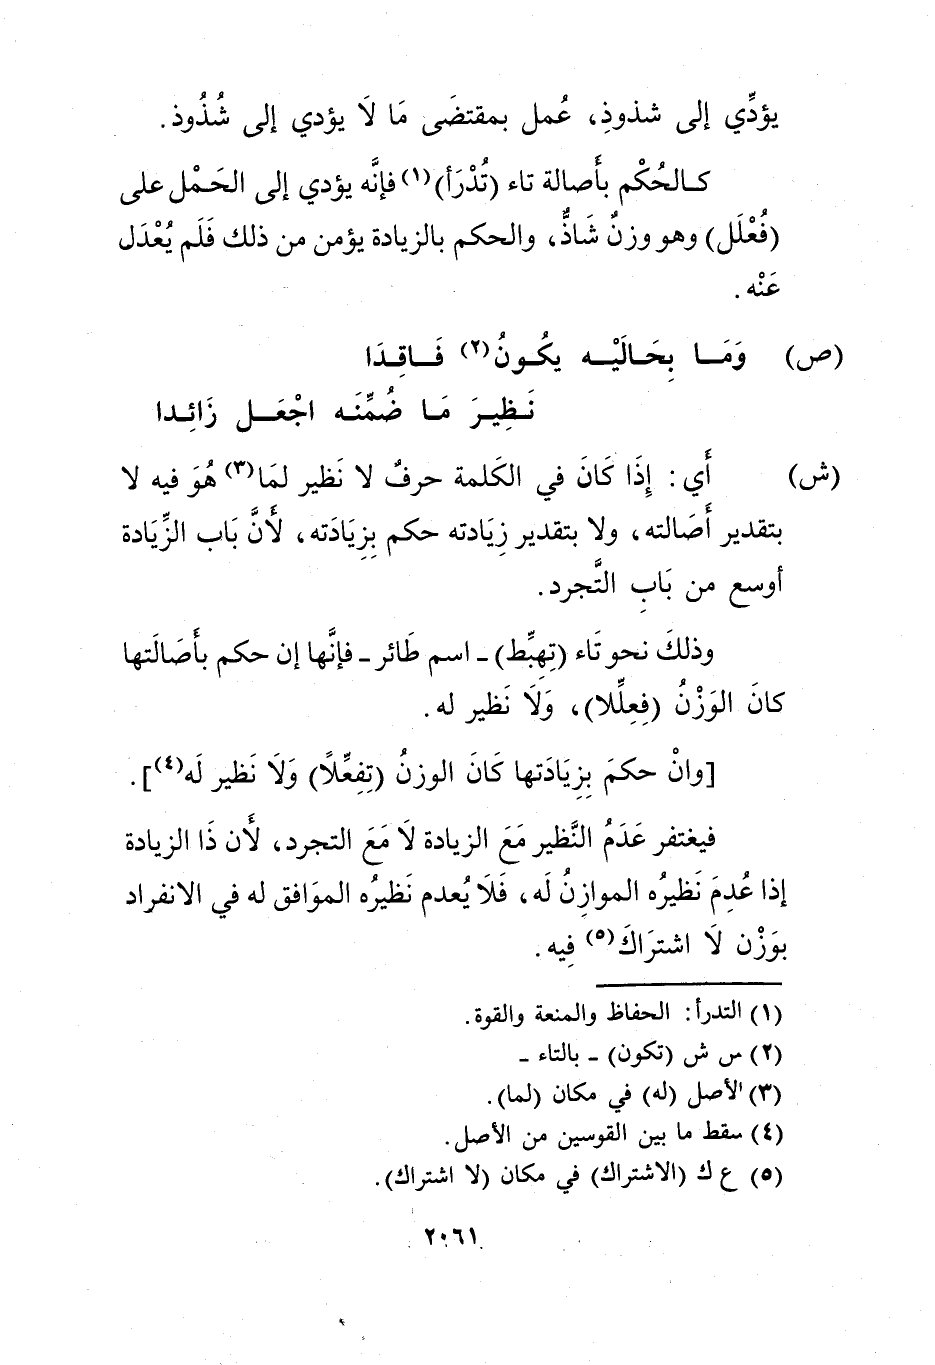 يؤدِّي إلى شذوذِ، عُمل بمقتضَى مَا لَا يؤدي إلى شُذُوذ.
كالحُكْم بأَصالة تاء (تُدْرَأ)(١) فإنَّه يؤدي إلى الحَمْل على
(فُعْلَل) وهو وزنٌ شَاذٌّ، والحكم بالزيادة يؤمن من ذلك فَلَم يُعْدَل
عَنْه.
(ص) وَمَا بِحَالَيْه يكُونُ(٢) فَاقِدَا
نَظِيرَ مَا ضُمِّنَه اجْعَل زَائِدا
(ش) أَي: إِذَا كَانَ في الكَلمة حرفٌ لا نَظير لمَا(٣) هُوَ فيه لا
بتقدير أَصَالته، ولا بتقدير زِيَادته حكم بِزِيَادَته، لأَنَّ بَاب الزِّيَادة
أوسع من بَابِ التَّجرد.
وذلكَ نحو تَاء (تِهِبِّط) - اسم طَائر - فإنَّها إن حكم بأَصَالَتها
كانَ الوَزْنُ (فِعِلِّلا)، وَلَا نَظير له.
[وانْ حكمَ بِزِيَادَتها كَانَ الوزنُ (تِفِعِّلاً) وَلَا نَظير لَه(٤)].
فيغتفر عَدَمُ النَّظير مَعَ الزيادة لَا مَعَ التجرد، لأَن ذَا الزيادة
إذا عُدِمَ نَظيرُه الموازِنُ لَه، فَلَا يُعدم نَظيرُه الموَافق له في الانفراد
بوَزْن لَا اشترَاكَ(٥) فِيه.
(١) التدرأ: الحفاظ والمنعة والقوة.
(٢) س ش (تكون) - بالتاء -
(٣) الأصل (له) في مكان (لما).
(٤) سقط ما بين القوسين من الأصل.
(٥) ع ك (الاشتراك) في مكان (لا اشتراك).
٢٠٦١